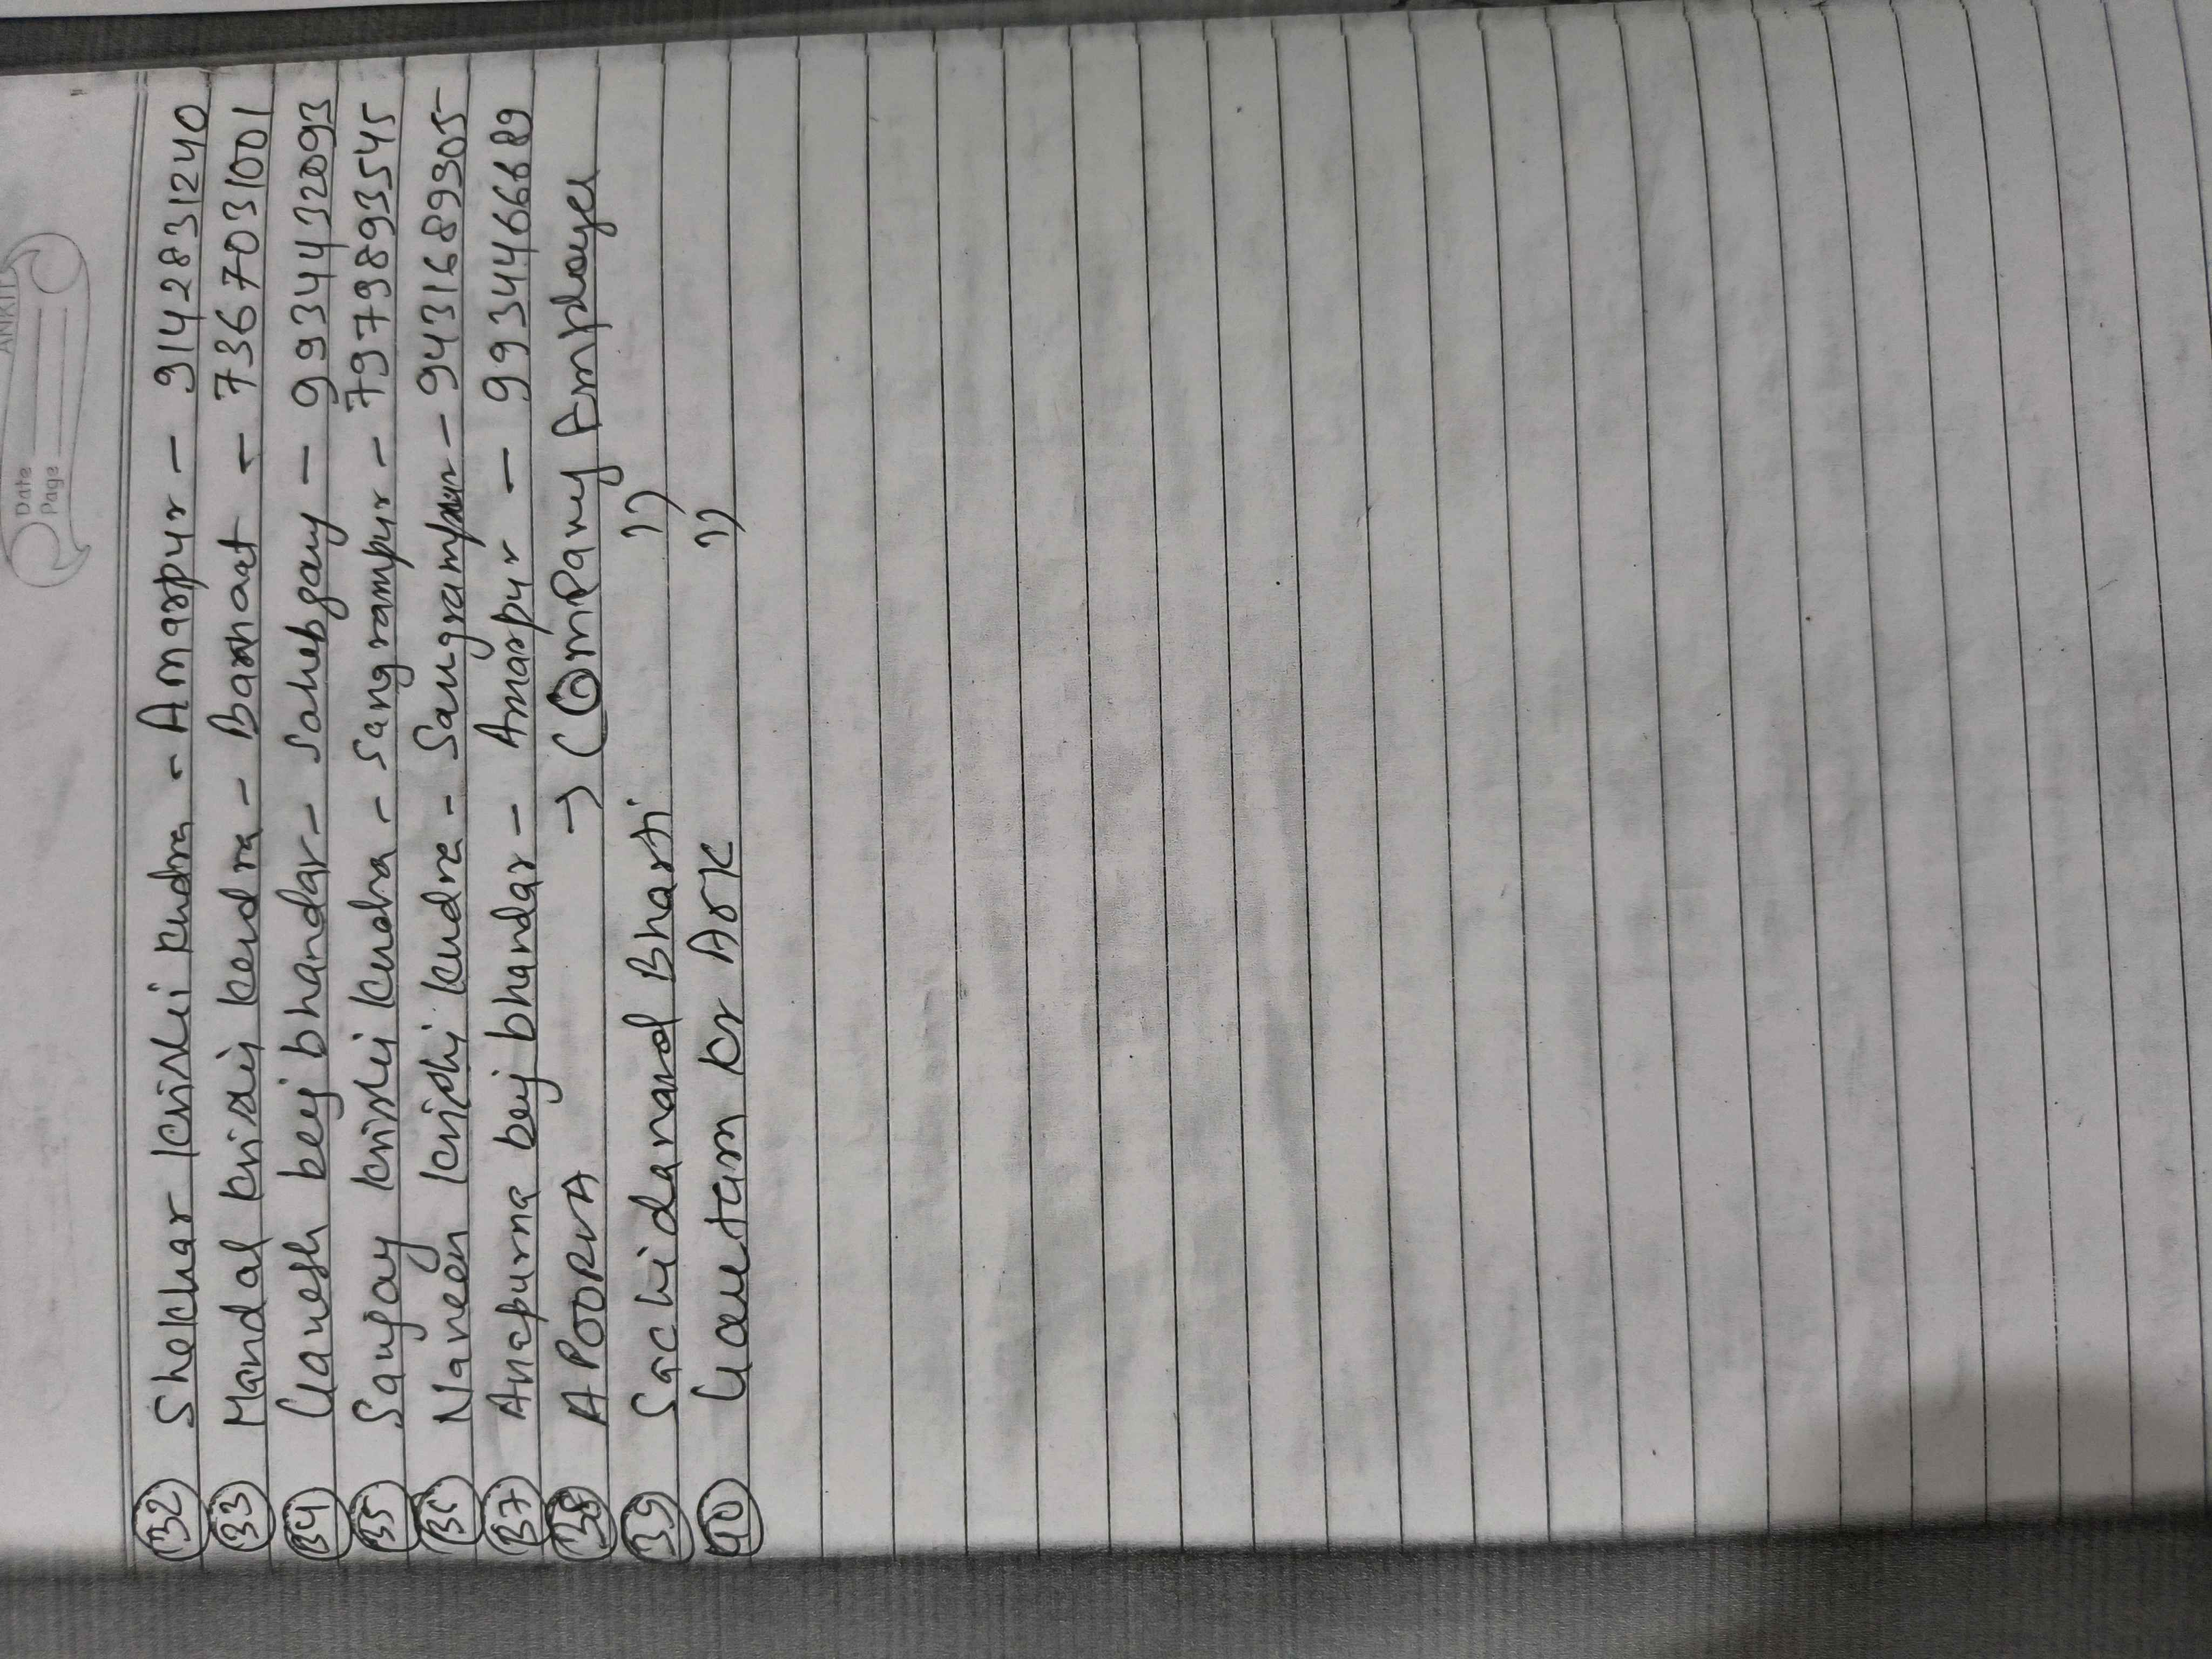 Date
Page
32 Shekhar Krishi Kendra - Amarpur - 9142831240
33 Mandal Krishi Kendra - Barahat - 7367031001
34 Ganesh beij bhandar - Sahebganj - 9934432093
35 Sanjay Krishi Kendra - Sangrampur - 7979893545
36 Naneen Krishi Kendra - Sangrampur - 9431689305
37 Anapurna beij bhandar - Amarpur - 9934466689
38 APOORVA → Company Employee
39 Sachidanand Bharti ''
40 Gautam Kr Ark ''